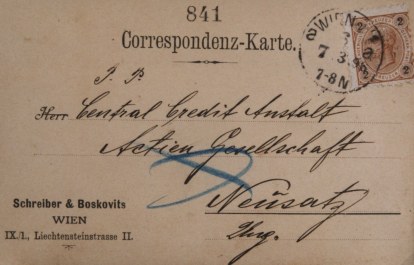 841
Correspondenz-Karte.
WIEN
7.3.98
7-8N
2
P. P.
Herr Central Credit Anstalt
Actien Gesellschaft
Neusatz
Ung.
Schreiber & Boskovits
WIEN
IX./1., Liechtensteinstrasse 11.